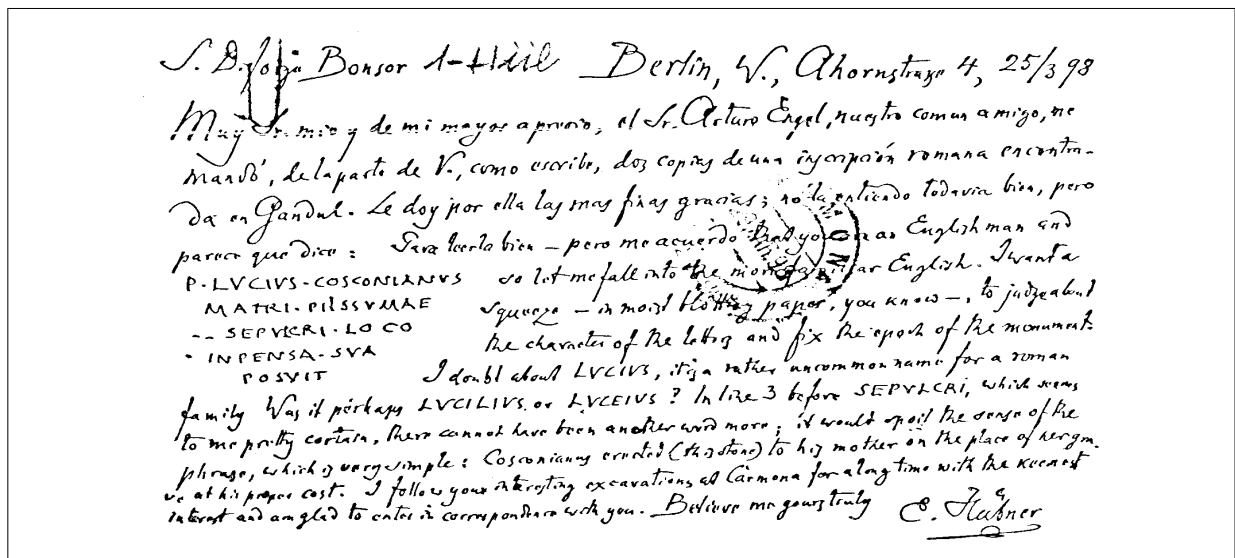 S. D. Jorge Bonsor Berlin, W., Ahornstrasse 4, 25/3 98
Muy Sr. mio y de mi mayor aprecio, el Sr. Arturo Engel, nuestro comun amigo, me
mandó, de la parte de V., como escribe, dos copias de una inscripción romana encontra-
da en Gandul. Le doy por ella las mas finas gracias; no la entiendo todavia bien, pero
parece que dice: Para leerla bien – pero me acuerdo that you are an English man and
P · LVCIVS · COSCONIANVS so let me fall into the more familiar English. I want a
MATRI · PIISSVMAE squeeze – in moist blotting paper, you know –, to judge about
-- SEPVLCRI · LOCO the character of the letters and fix the epoch of the monument.
· INPENSA · SVA
POSVIT I doubt about LVCIVS, it is a rather uncommon name for a roman
family Was it perhaps LVCILIVS or LVCEIVS? In line 3 before SEPVLCRI, which seems
to me pretty certain, there cannot have been another word more; it would spoil the sense of the
phrase, which is very simple: Cosconianus erected (this stone) to his mother on the place of her gra-
ve at his proper cost. I follow your interesting excavations at Carmona for a long time with the keenest
interest and am glad to enter in correspondence with you. Believe me yours truly E. Hübner